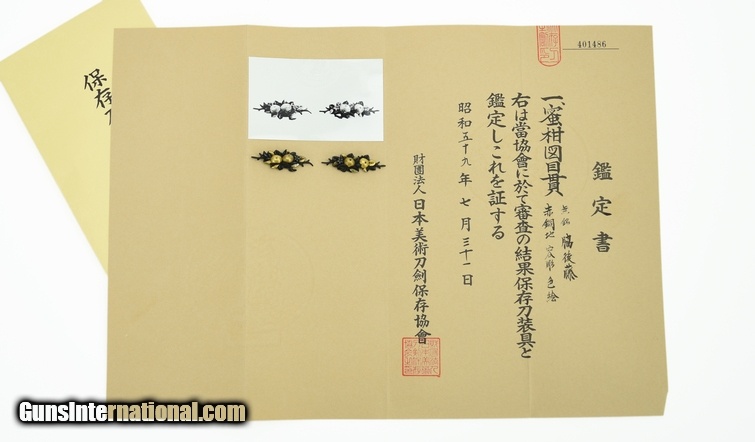 401486
鑑定書
一、蜜柑図目貫
無銘 脇後藤
赤銅地 容彫 色絵
右は當協會に於て審査の結果保存刀装具と
鑑定しこれを証する
昭和五十九年 七月 三十一日
財團法人 日本美術刀劍保存協會
保存刀
GunsInternational.com